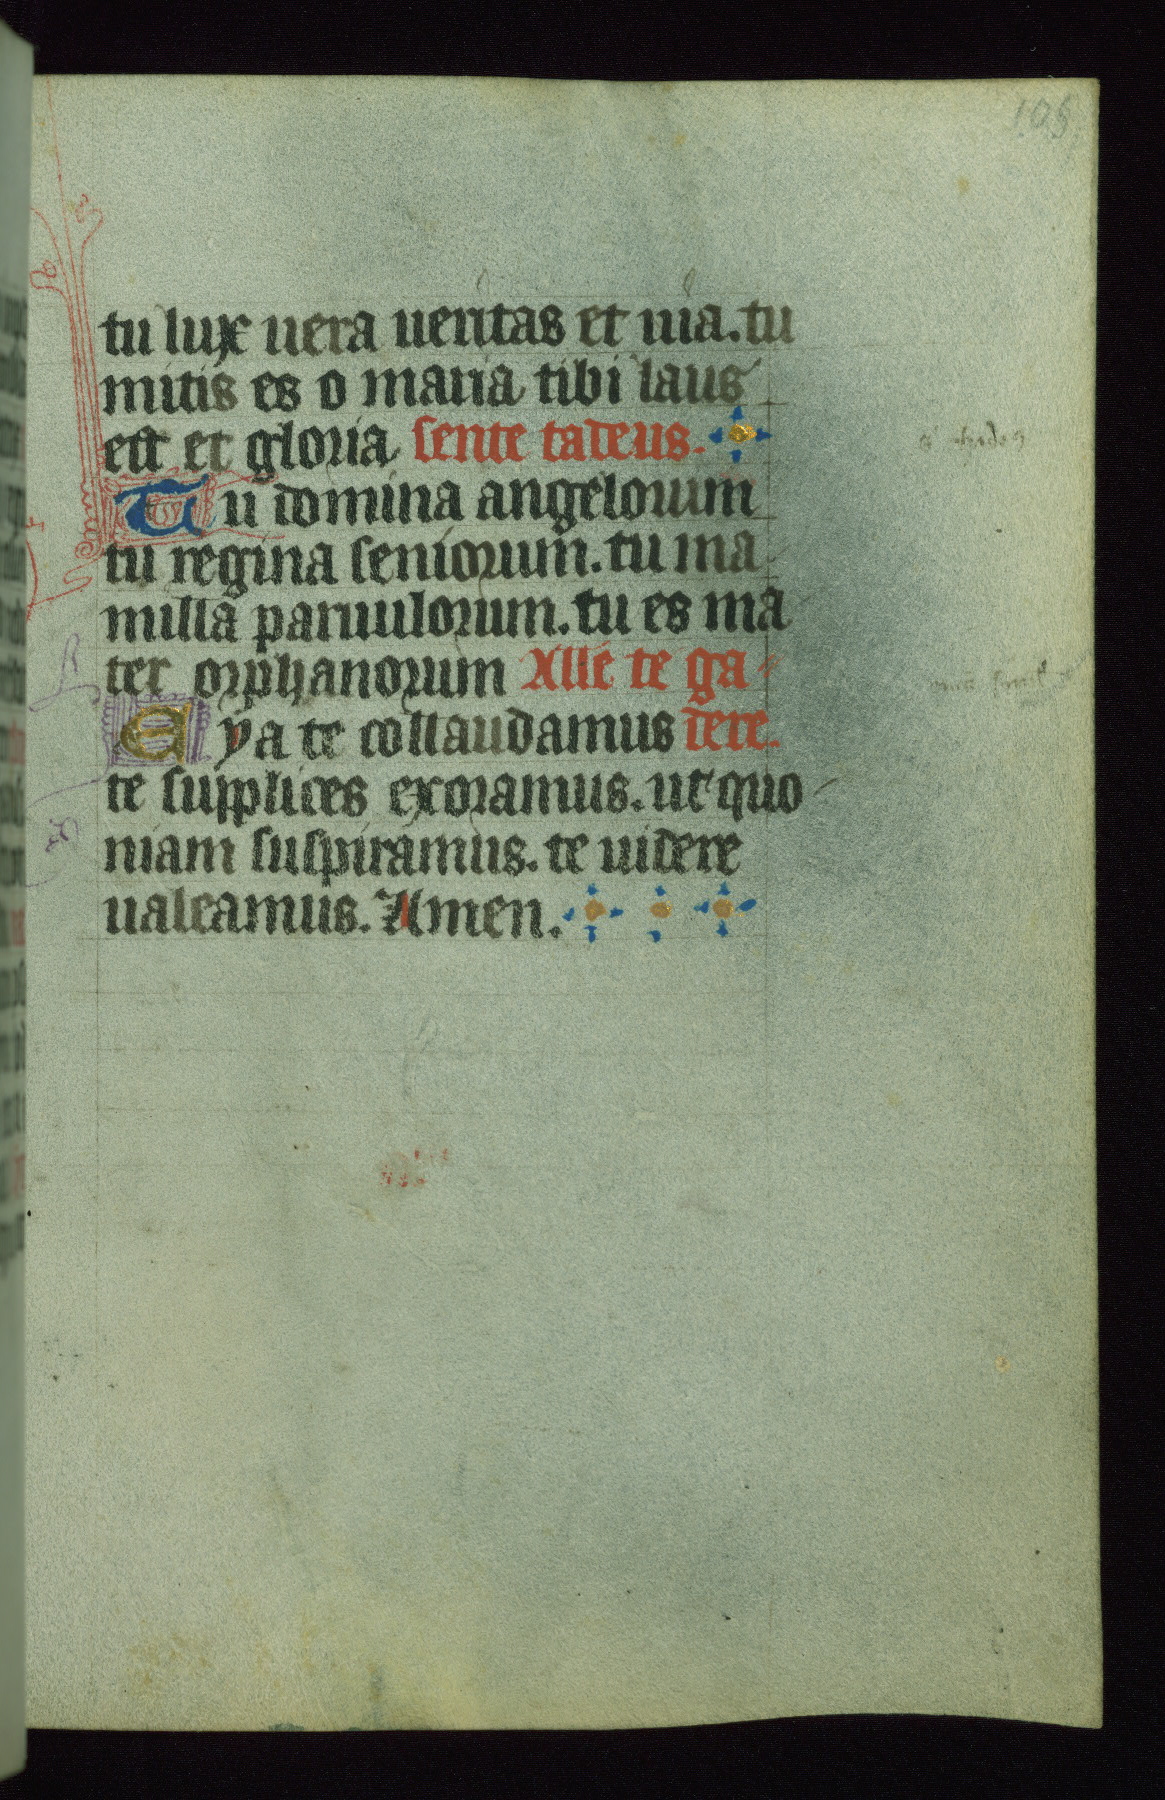 105
tu lux uera ueritas et uia. tu
mitis es o maria tibi laus
est et gloria sente tadeus.
Tu domina angelorum
tu regina seniorum. tu ma
milla paruulorum. tu es ma
ter orphanorum Alle te ga
Eya te collaudamus dere.
te supplices exoramus. ut quo
niam suspiramus. te uidere
ualeamus. Amen.